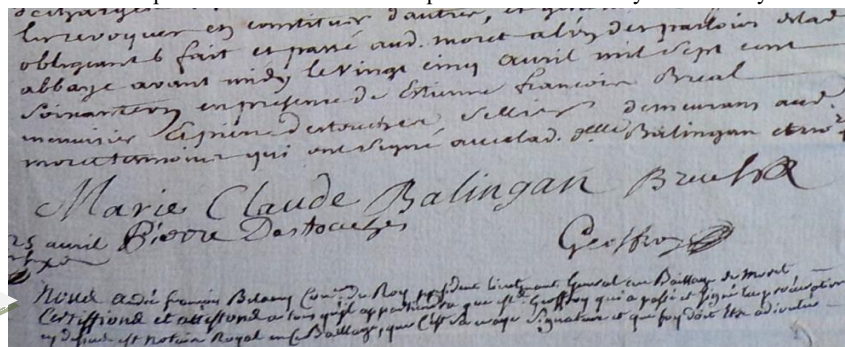 les revoquer en constituer d'autre, et
obligeant &. fait et passé aud. moret a l'un des parloirs de lad.
abbaye avant midy le vingt cinq avril mil sept cent
soixante en presence de Estienne françois Breal
menuisier Et pierre destouches sellier demeurans aud.
moret temoins qui ont signé avec lad. dlle Balingan et no.re
Marie Claude Balingan Breal
25 avril Pierre Destouches
Geoffroy
Nous andré françois Con.er du Roy president Lieutenant General au Bailliage de Moret
Certiffions et attestons a tous qu'il appartiendra que Me Geoffroy qui a passé et signé la procuration
est Notaire Royal en ce Bailliage, que C'est sa vraye signature et que foy doit etre adjoutée